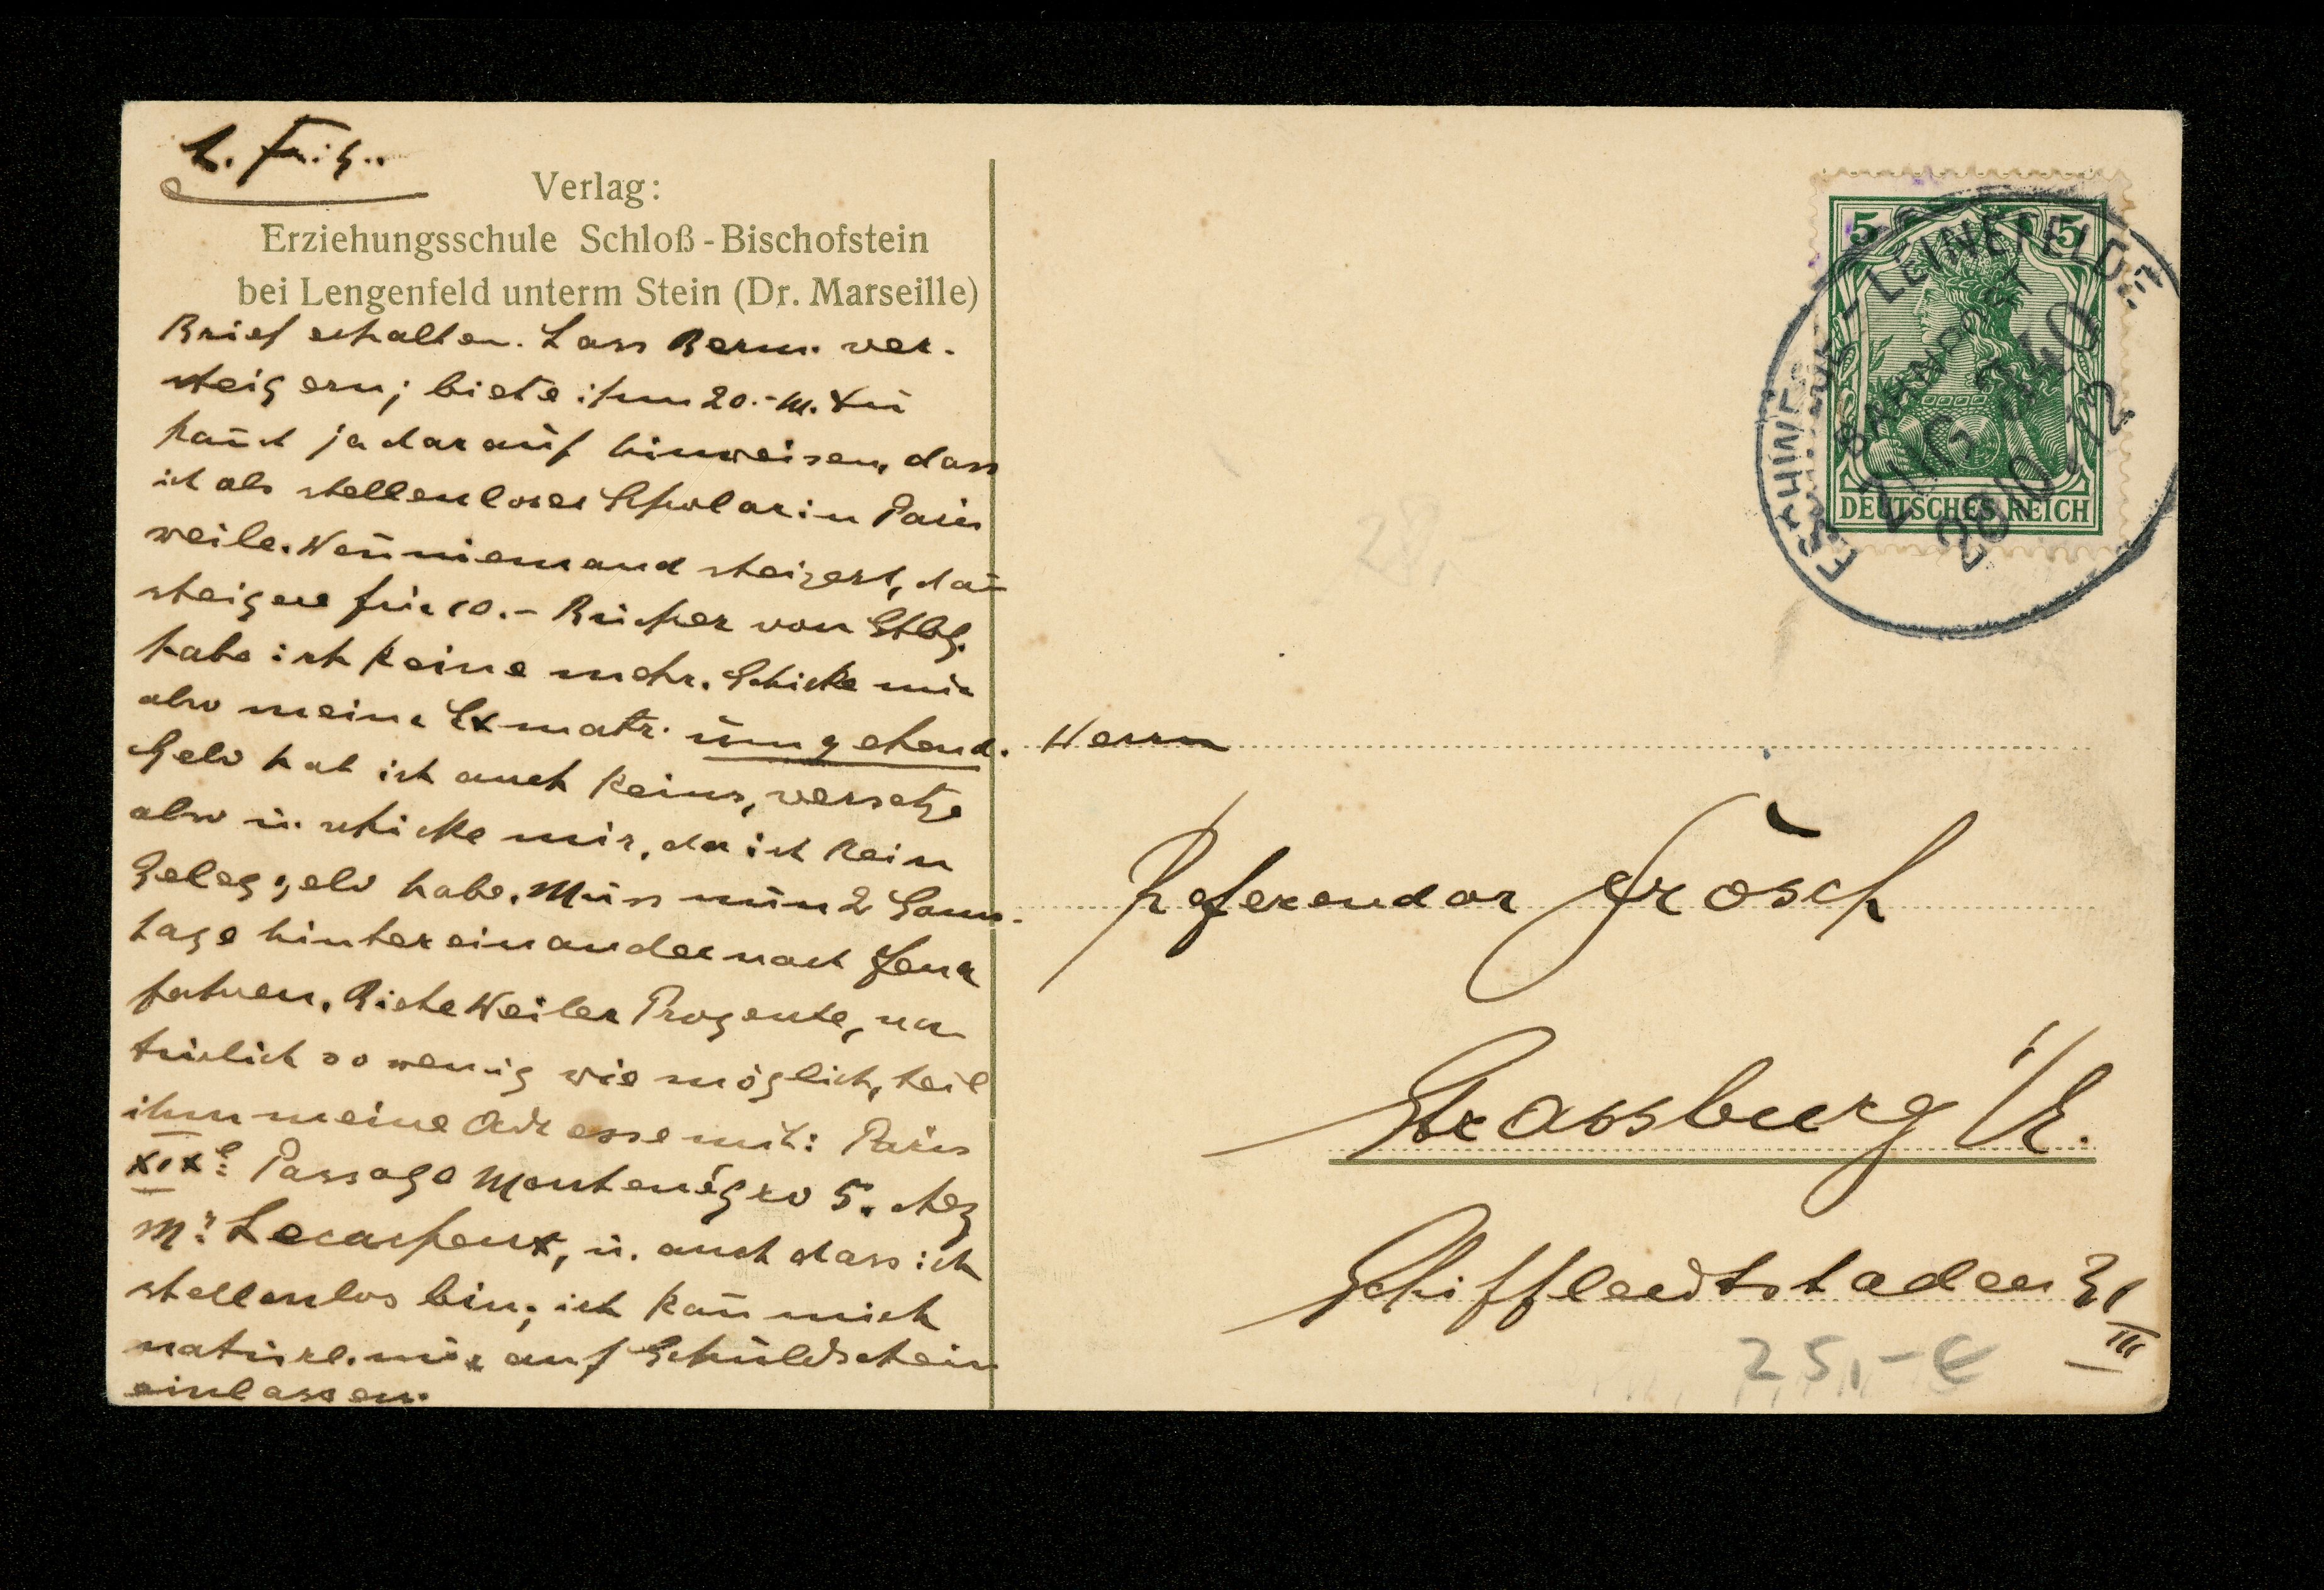 L. Fritz..
Verlag:
Erziehungsschule Schloß-Bischofstein
bei Lengenfeld unterm Stein (Dr. Marseille)
Brief erhalten. Lass Berm. ver-
steigern; biete ihm 20.- M. Du
kañst ja darauf hinweisen, dass
ich als stellenloser Scholar in Paris
weile. Weñ niemand steigert, dañ
steigere für 10.- Bücher von Stbg.
habe ich keine mehr. Schicke mir
also meine Exmatr. umgehend.
Geld hab ich auch keins, versetze
also u. schicke mir, da ich kein
Geld habe. Muss nun 2 Sams-
tage hintereinander nach Jena
fahren. Biete Weiler Prozente, na-
türlich so wenig wie möglich, teil
ihm meine Adresse mit: Paris
XIXe: Passage Monténégro 5. chez
Mr: u. auch dass ich
stellenlos bin; ich kañ mich
natürl. nur auf Schuldschein
einlassen.
5 5
DEUTSCHES REICH
ESCHWEGE - LEINEFELDE
BAHNPOST
ZUG 740
28 10 12
Herrn
Referendar Frösch
Strassburg i/E.
Schiffleutstaden 31
III
28,-
25,- €